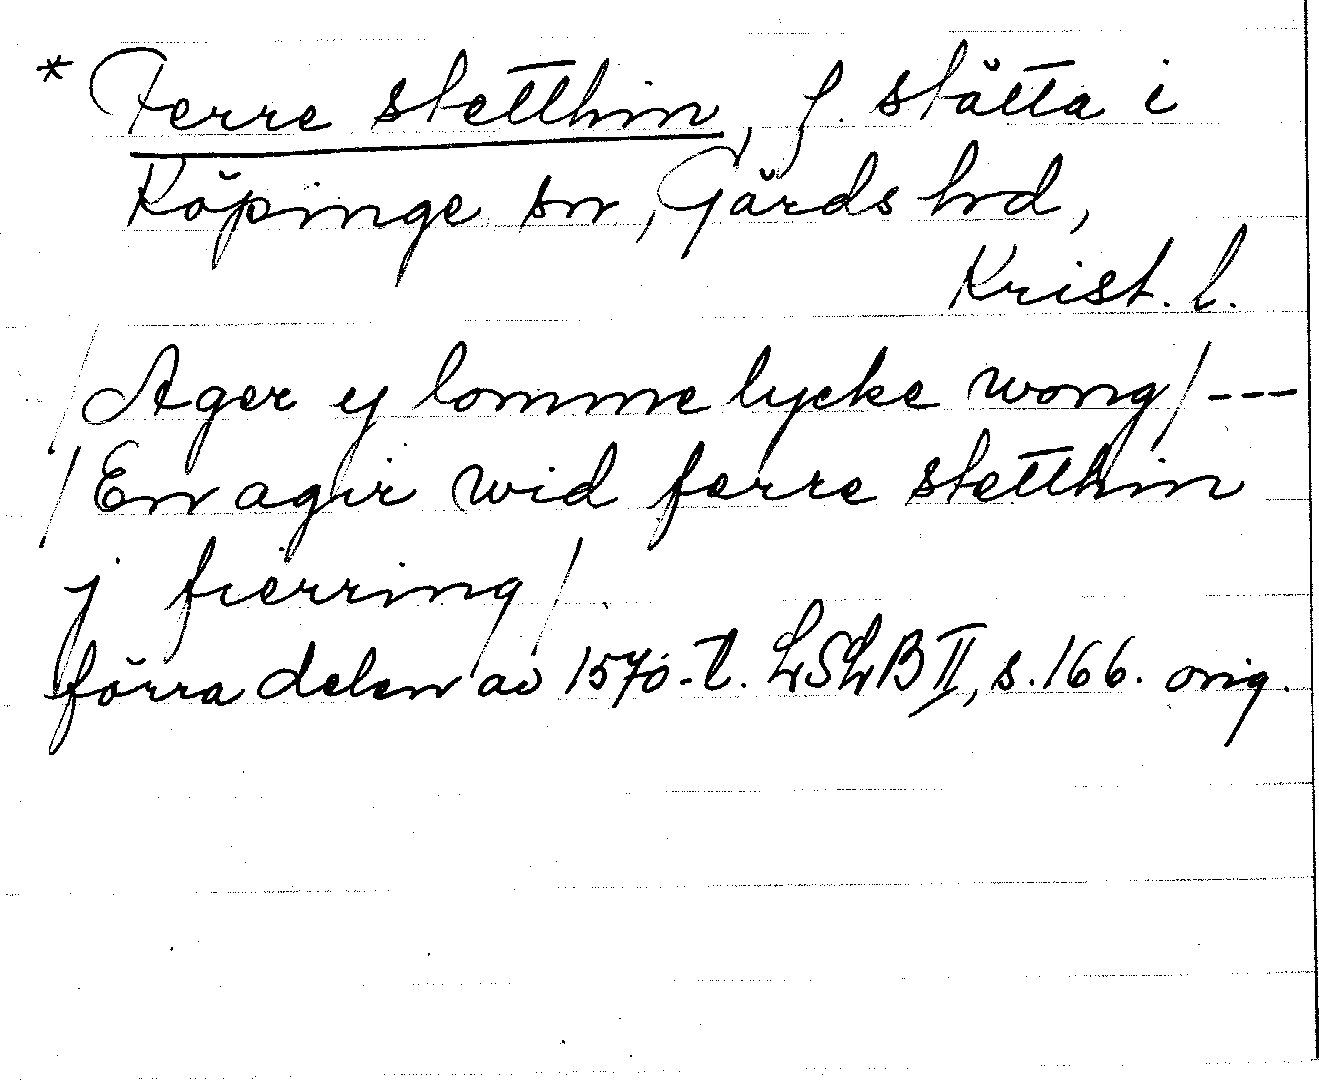 * Ferre stetthin, f. stätta i
Köpinge sn, Gärds hd,
Krist. l.
/Ager y lomme lycke wong/---
/En agir wid ferre stetthin
j fierring/.
förra delen av 1570-t. LSLB II, s. 166. orig.